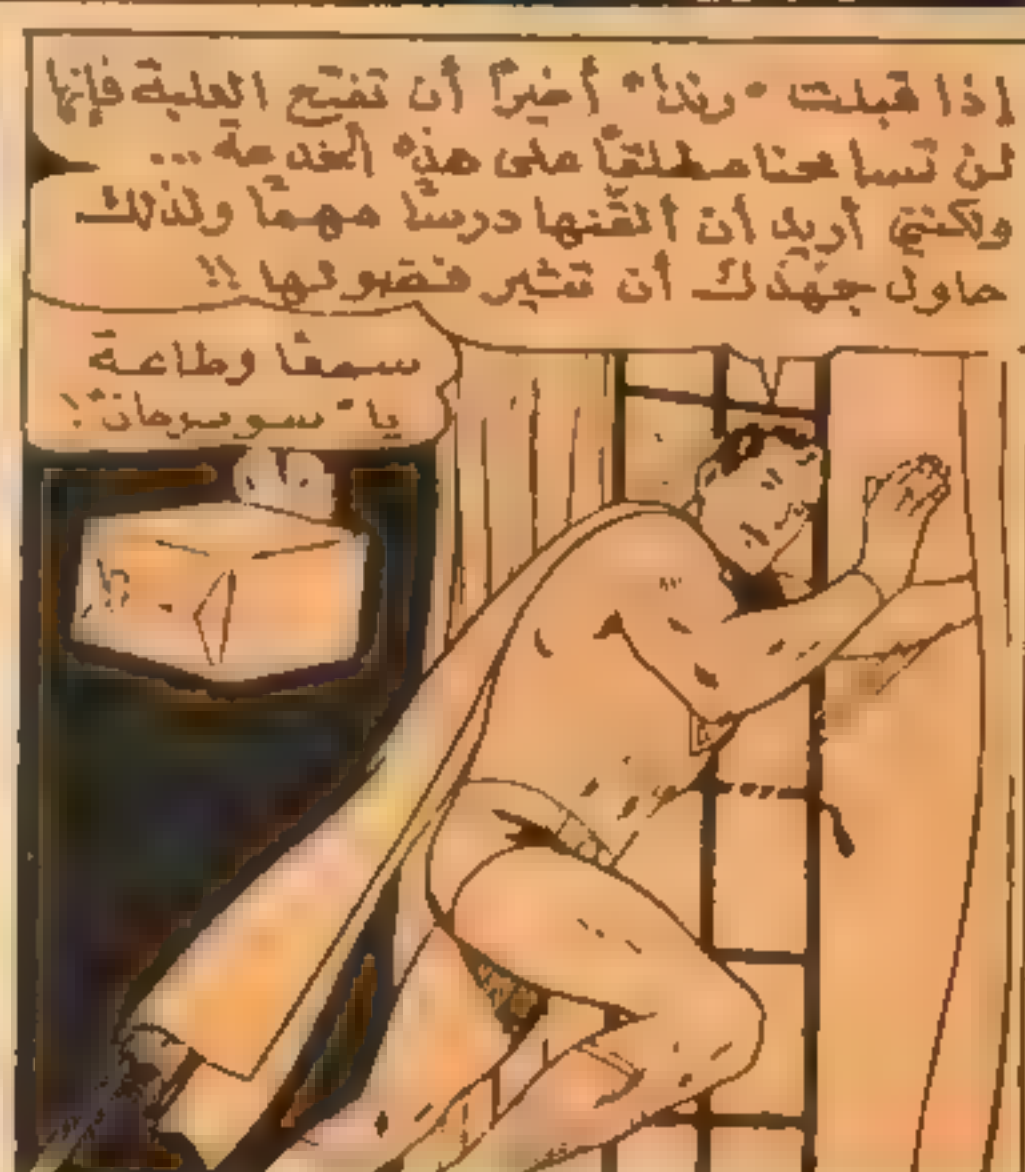 إذا قبلت "رندا" أخيراً أن تفتح العلبة فإنها
لن تسامحنا مطلقاً على هذه الخدعة ...
ولكنني أريد أن ألقّنها درساً مهمّاً ولذلك
حاول جهدك أن تثير فضولها !!
سمعًا وطاعة
يا "سوبرمان"!